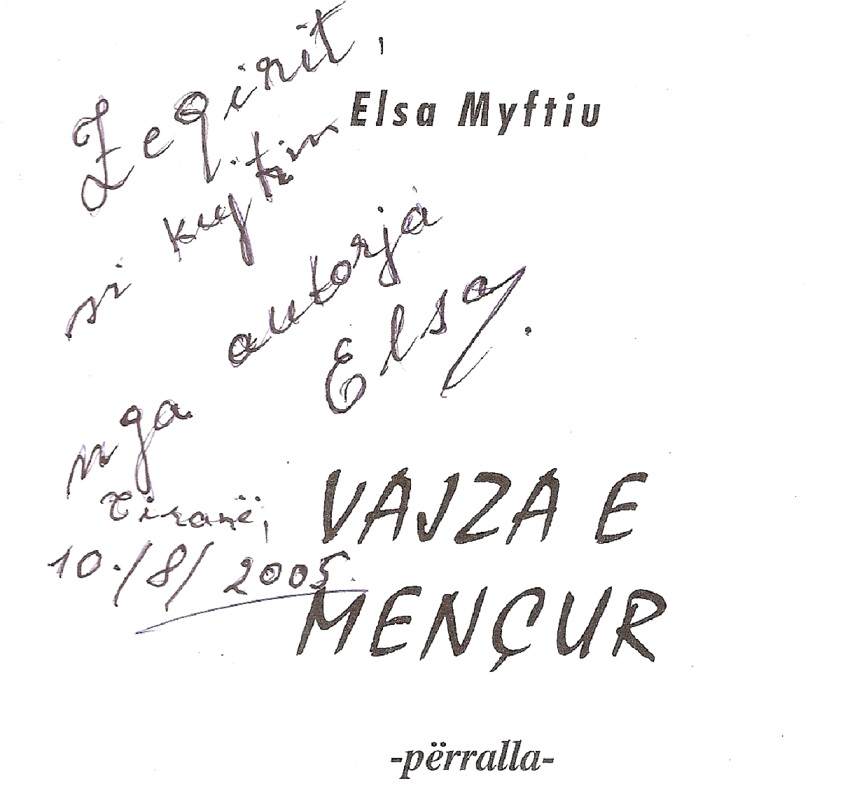 Zeqirit,
Elsa Myftiu
si kujtim
nga autorja
Elsa.
Tiranë,
10./8/2005.
VAJZA E
MENÇUR
-përralla-